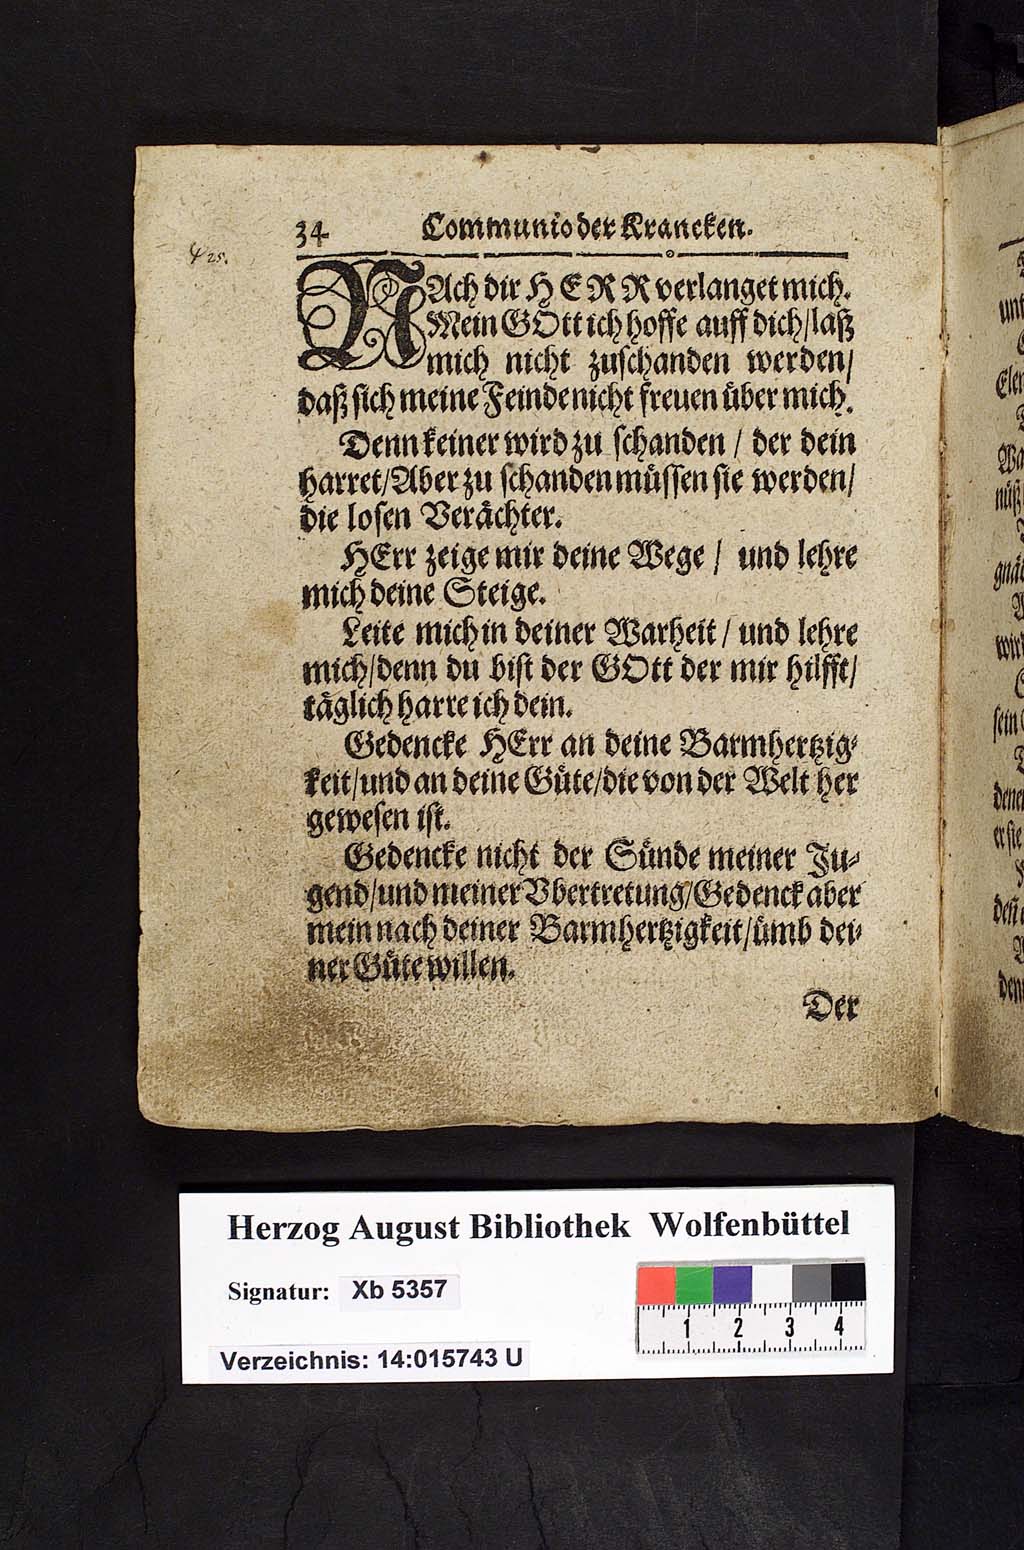 34 Communio der Krancken.
ψ 25.
NAch dir HERR verlanget mich.
Mein GOtt ich hoffe auff dich/laß
mich nicht zuschanden werden/
daß sich meine Feinde nicht freuen über mich.
Denn keiner wird zu schanden / der dein
harret/Aber zu schanden müssen sie werden/
die losen Verächter.
HErr zeige mir deine Wege / und lehre
mich deine Steige.
Leite mich in deiner Warheit / und lehre
mich/denn du bist der GOtt der mir hilfft/
täglich harre ich dein.
Gedencke HErr an deine Barmhertzig-
keit/und an deine Güte/die von der Welt her
gewesen ist.
Gedencke nicht der Sünde meiner Ju-
gend/und meiner Vbertretung/Gedenck aber
mein nach deiner Barmhertzigkeit/ümb dei-
ner Güte willen.
Der
unt
Elen
Wa
nüß
gnäd
wir
sein
dene
er sie
deñ
denn
Herzog August Bibliothek Wolfenbüttel
Signatur: Xb 5357
Verzeichnis: 14:015743 U
1 2 3 4